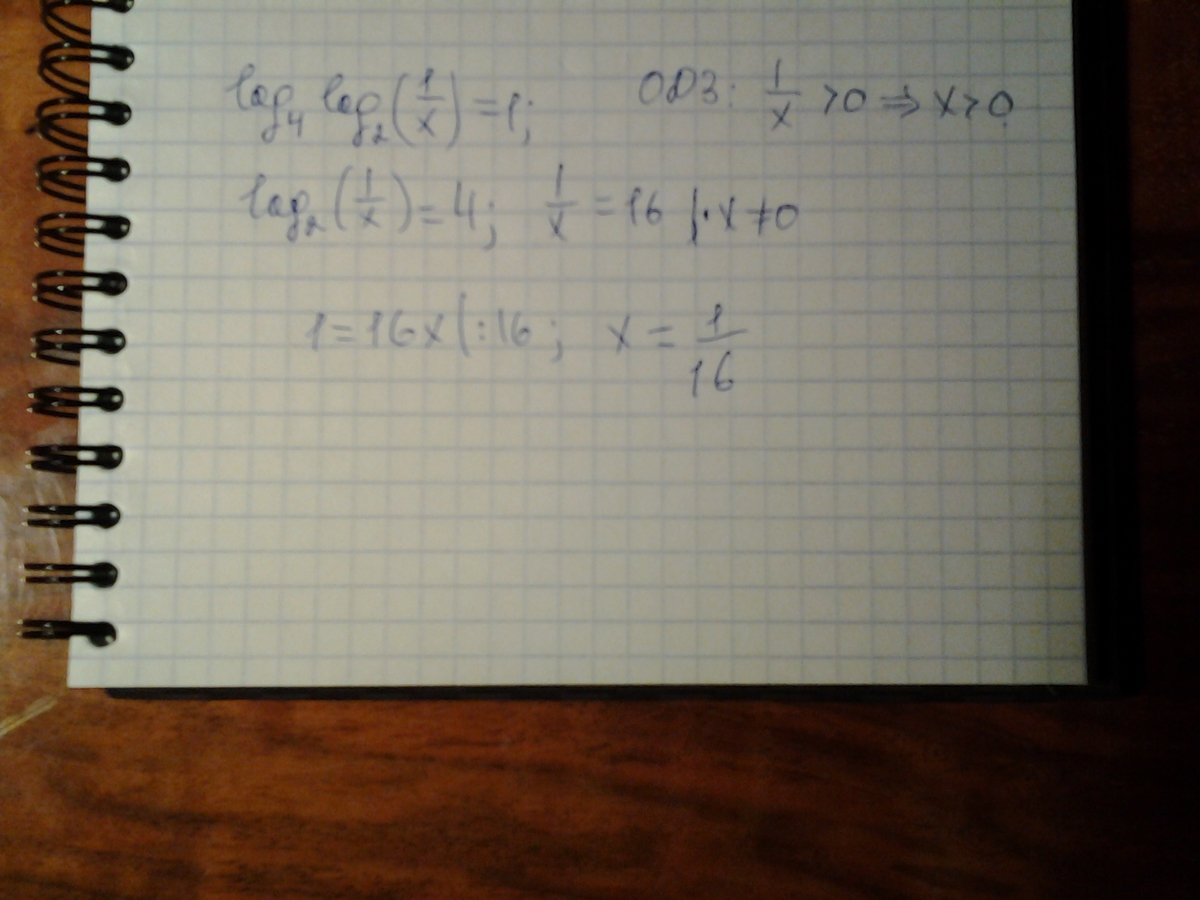 log₄ log₂(1/x) = 1; ОДЗ: 1/x >0 ⇒ x>0
log₂(1/x) = 4; 1/x = 16 |·x≠0
1=16x |:16; x = 1/16